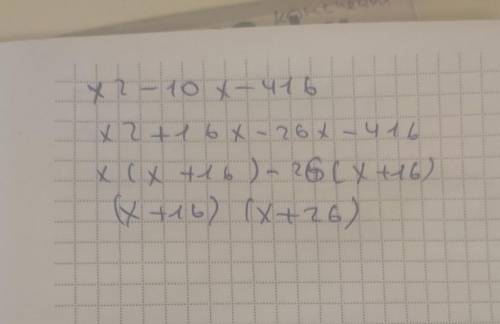 x2-10x-416
x2+16x-26x-416
x(x+16)-26(x+16)
(x+16) (x+26)